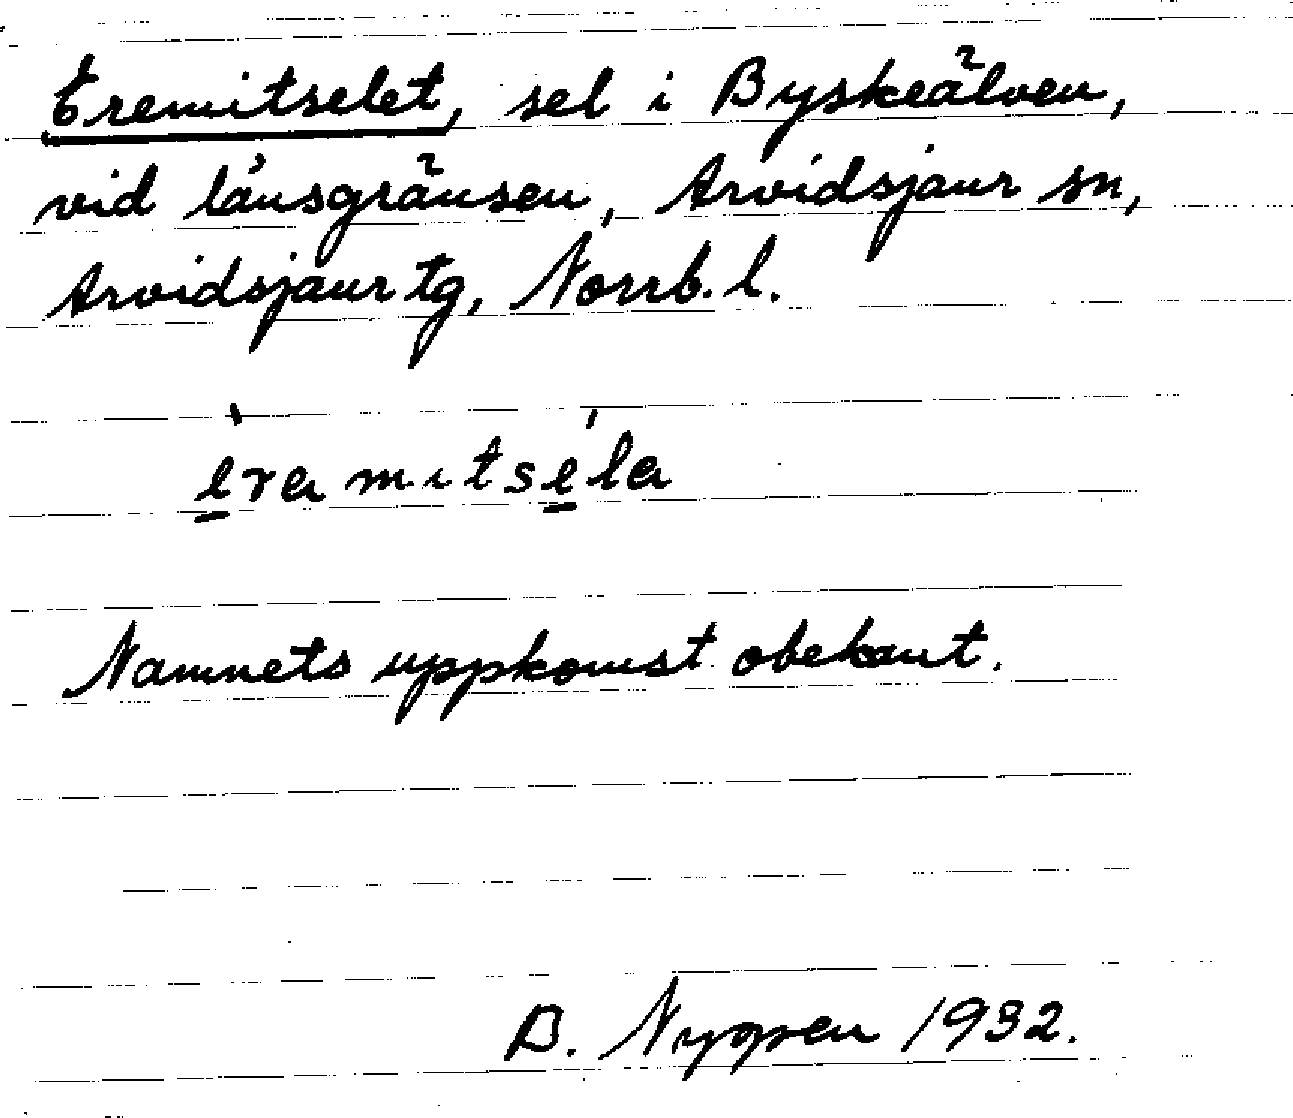 Eremitselet, sel i Byskeälven,
vid länsgränsen, Arvidsjaur sn,
Arvidsjaur tg, Norrb. l.
Namnets uppkomst obekant.
B. Nygren 1932.